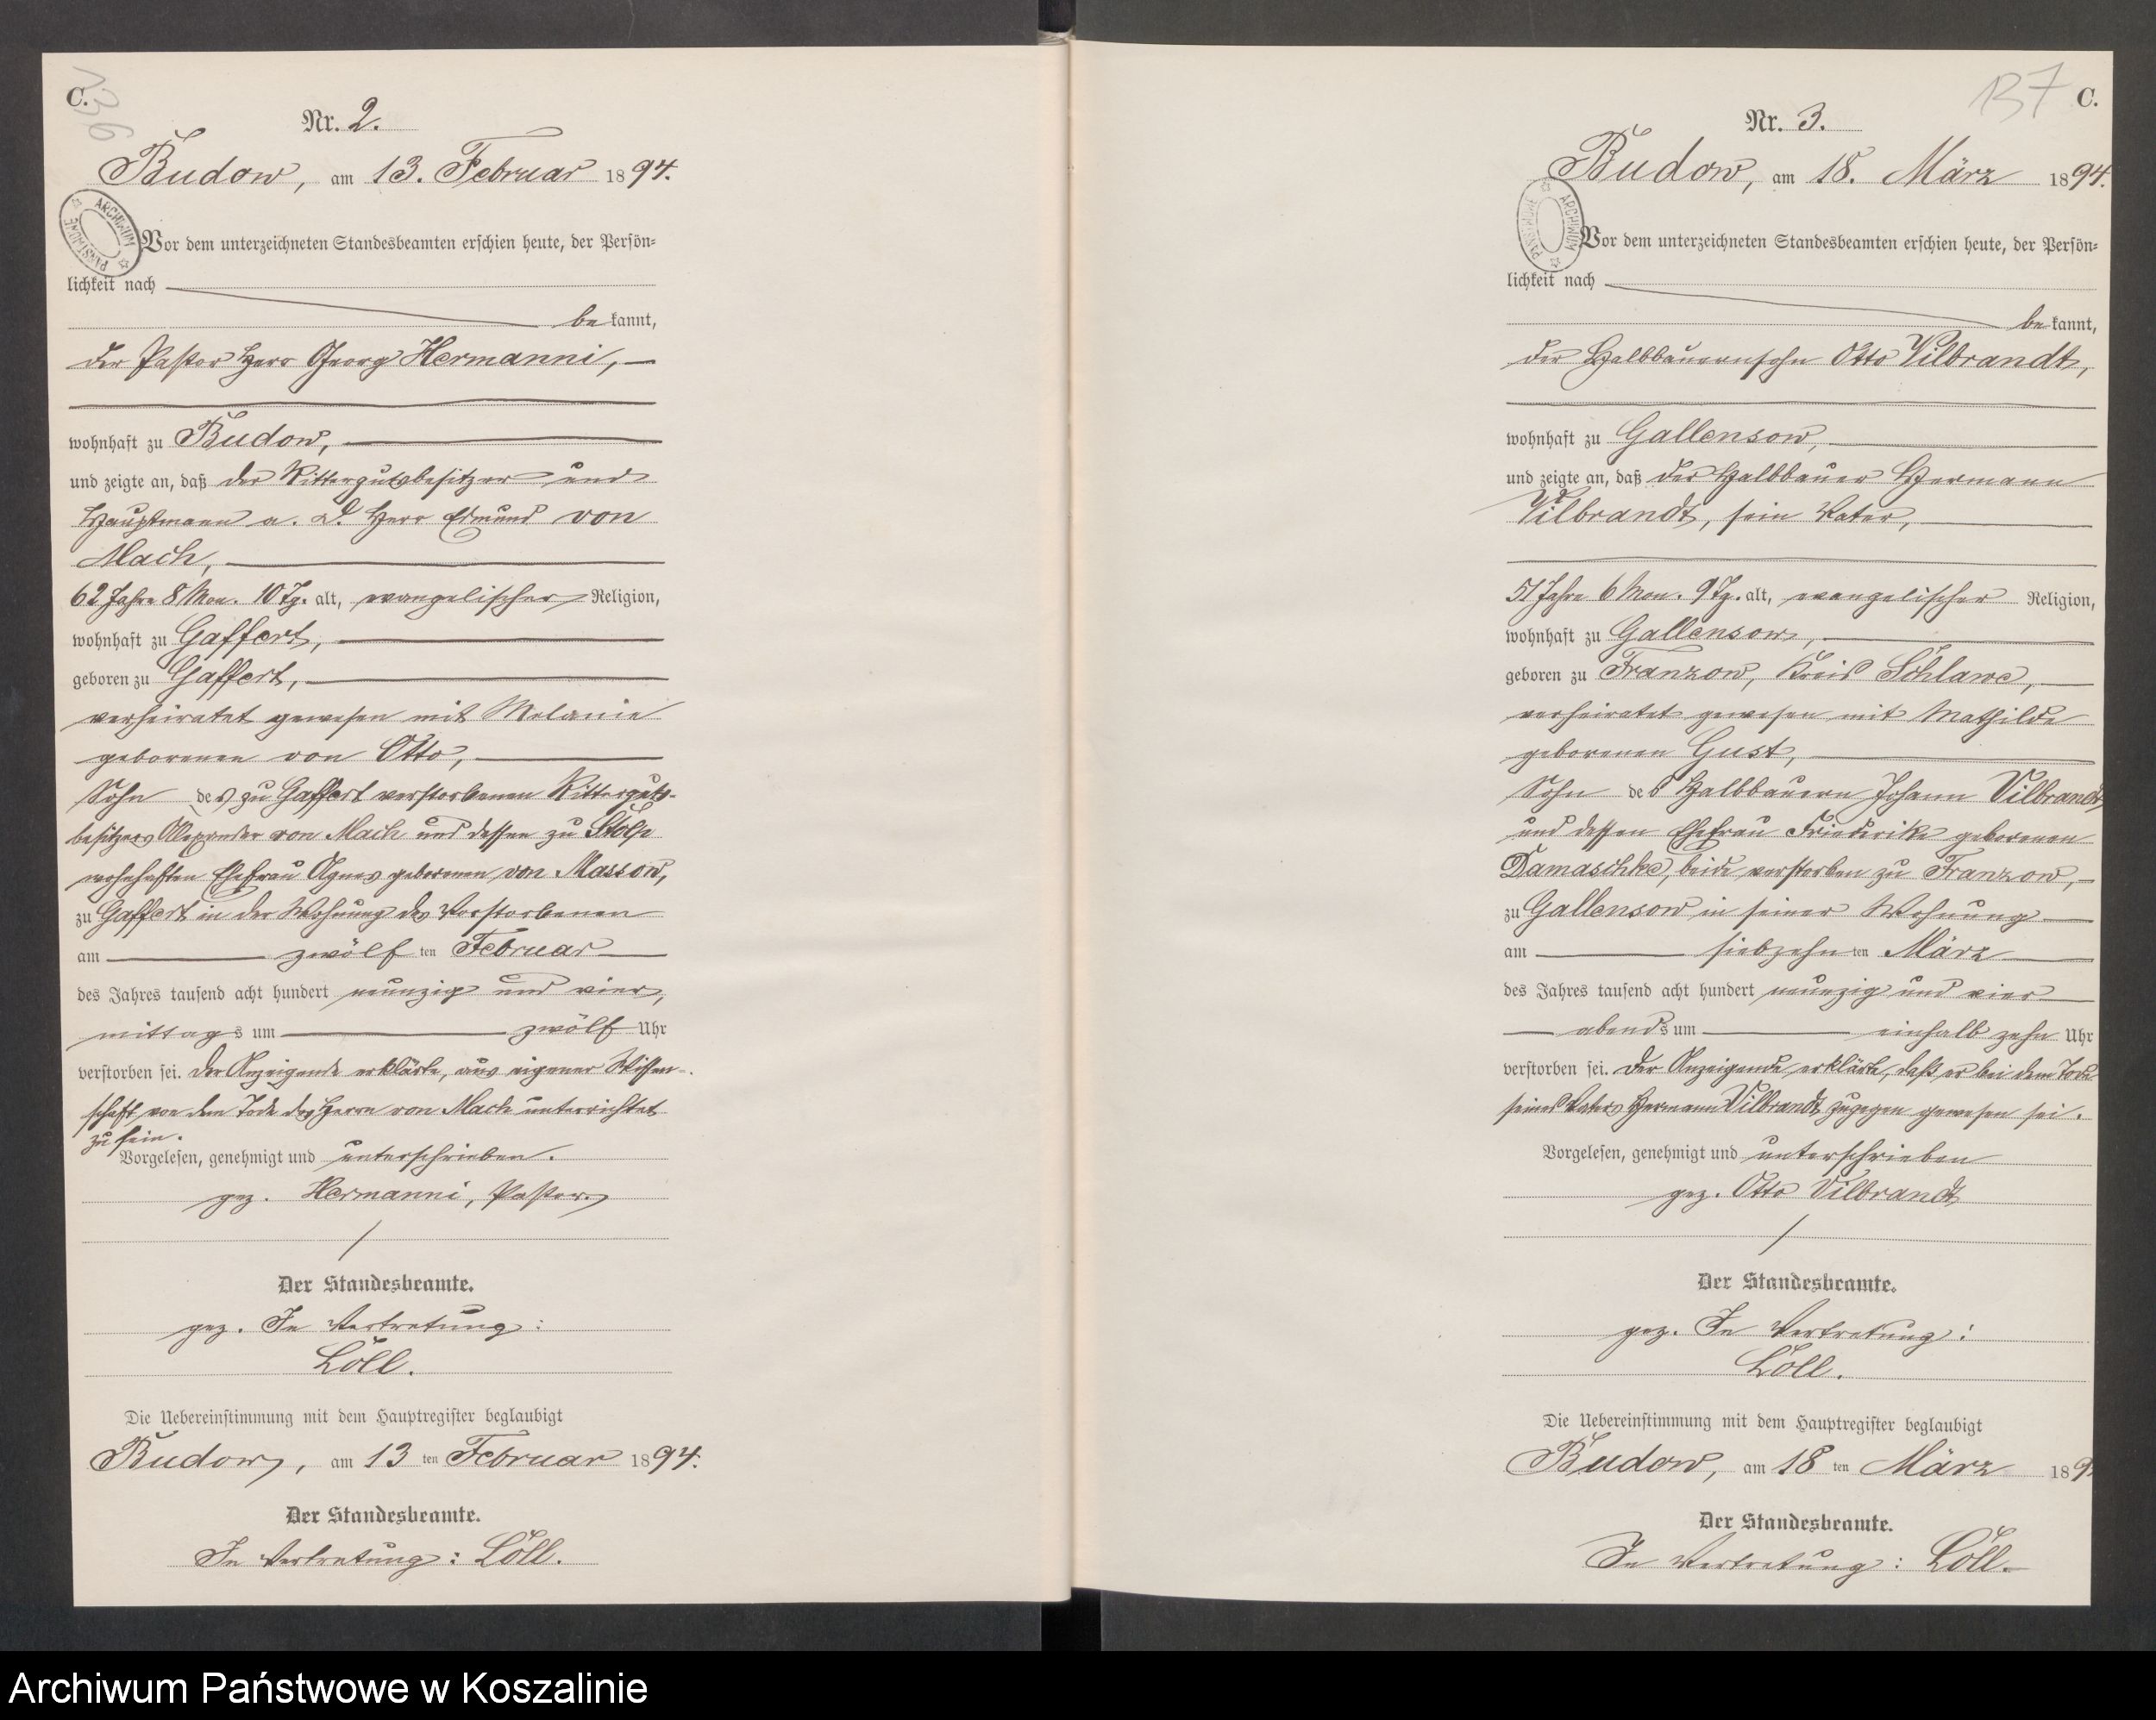 C.
136
Nr. 2.
Budow, am 13. Februar 1894.
ARCHIWUM PAŃSTWOWE
Vor dem unterzeichneten Standesbeamten erschien heute, der Persön-
lichkeit nach
bekannt,
der Pastor Herr Georg Hermanni,
wohnhaft zu Budow,
und zeigte an, daß der Rittergutsbesitzer und
Hauptmann a. D. Herr Edmund von
Mach,
62 Jahre 8 Mon. 10 Tg. alt, evangelischer Religion,
wohnhaft zu Gaffert,
geboren zu Gaffert,
verheiratet gewesen mit Melanie
geborenen von Otto,
Sohn des zu Gaffert verstorbenen Ritterguts-
besitzers Alexander von Mach und dessen zu Stolp
wohnhaften Ehefrau Agnes geborenen von Massow,
zu Gaffert in der Wohnung des Verstorbenen
am zwölften Februar
des Jahres tausend acht hundert neunzig und vier,
mittags um zwölf Uhr
verstorben sei. Der Anzeigende erklärte, aus eigener Wissen-
schaft von dem Tode des Herrn von Mach unterrichtet
zu sein.
Vorgelesen, genehmigt und unterschrieben.
gez. Hermanni, Pastor.
Der Standesbeamte.
gez. In Vertretung:
Löll.
Die Uebereinstimmung mit dem Hauptregister beglaubigt
Budow, am 13 ten Februar 1894.
Der Standesbeamte.
In Vertretung: Löll.
137 C.
Nr. 3.
Budow, am 18. März 1894.
ARCHIWUM PAŃSTWOWE
Vor dem unterzeichneten Standesbeamten erschien heute, der Persön-
lichkeit nach
bekannt,
der Halbbauernsohn Otto Vilbrandt,
wohnhaft zu Gallensow,
und zeigte an, daß der Halbbauer Hermann
Vilbrandt, sein Vater,
51 Jahre 6 Mon. 9 Tg. alt, evangelischer Religion,
wohnhaft zu Gallensow,
geboren zu Franzow, Kreis Schlawe,
verheiratet gewesen mit Mathilde
geborenen Gust,
Sohn des Halbbauern Johann Vilbrandt
und dessen Ehefrau Friederike geborenen
Damaschke, beide verstorben zu Franzow,
zu Gallensow in seiner Wohnung
am siebzehnten März
des Jahres tausend acht hundert neunzig und vier
abends um einhalb zehn Uhr
verstorben sei. Der Anzeigende erklärte, daß er bei dem Tode
seines Vaters Hermann Vilbrandt zugegen gewesen sei.
Vorgelesen, genehmigt und unterschrieben
gez. Otto Vilbrandt
Der Standesbeamte.
gez. In Vertretung:
Löll.
Die Uebereinstimmung mit dem Hauptregister beglaubigt
Budow, am 18 ten März 189
Der Standesbeamte.
In Vertretung: Löll.
Archiwum Państwowe w Koszalinie